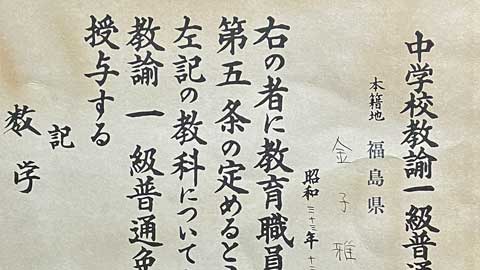 中学校教諭一級普通
本籍地 福島県
金子雅
昭和三十三年十
右の者に教育職員
第五条の定めると
左記の教科について
教諭一級普通免
授与する
記
数学